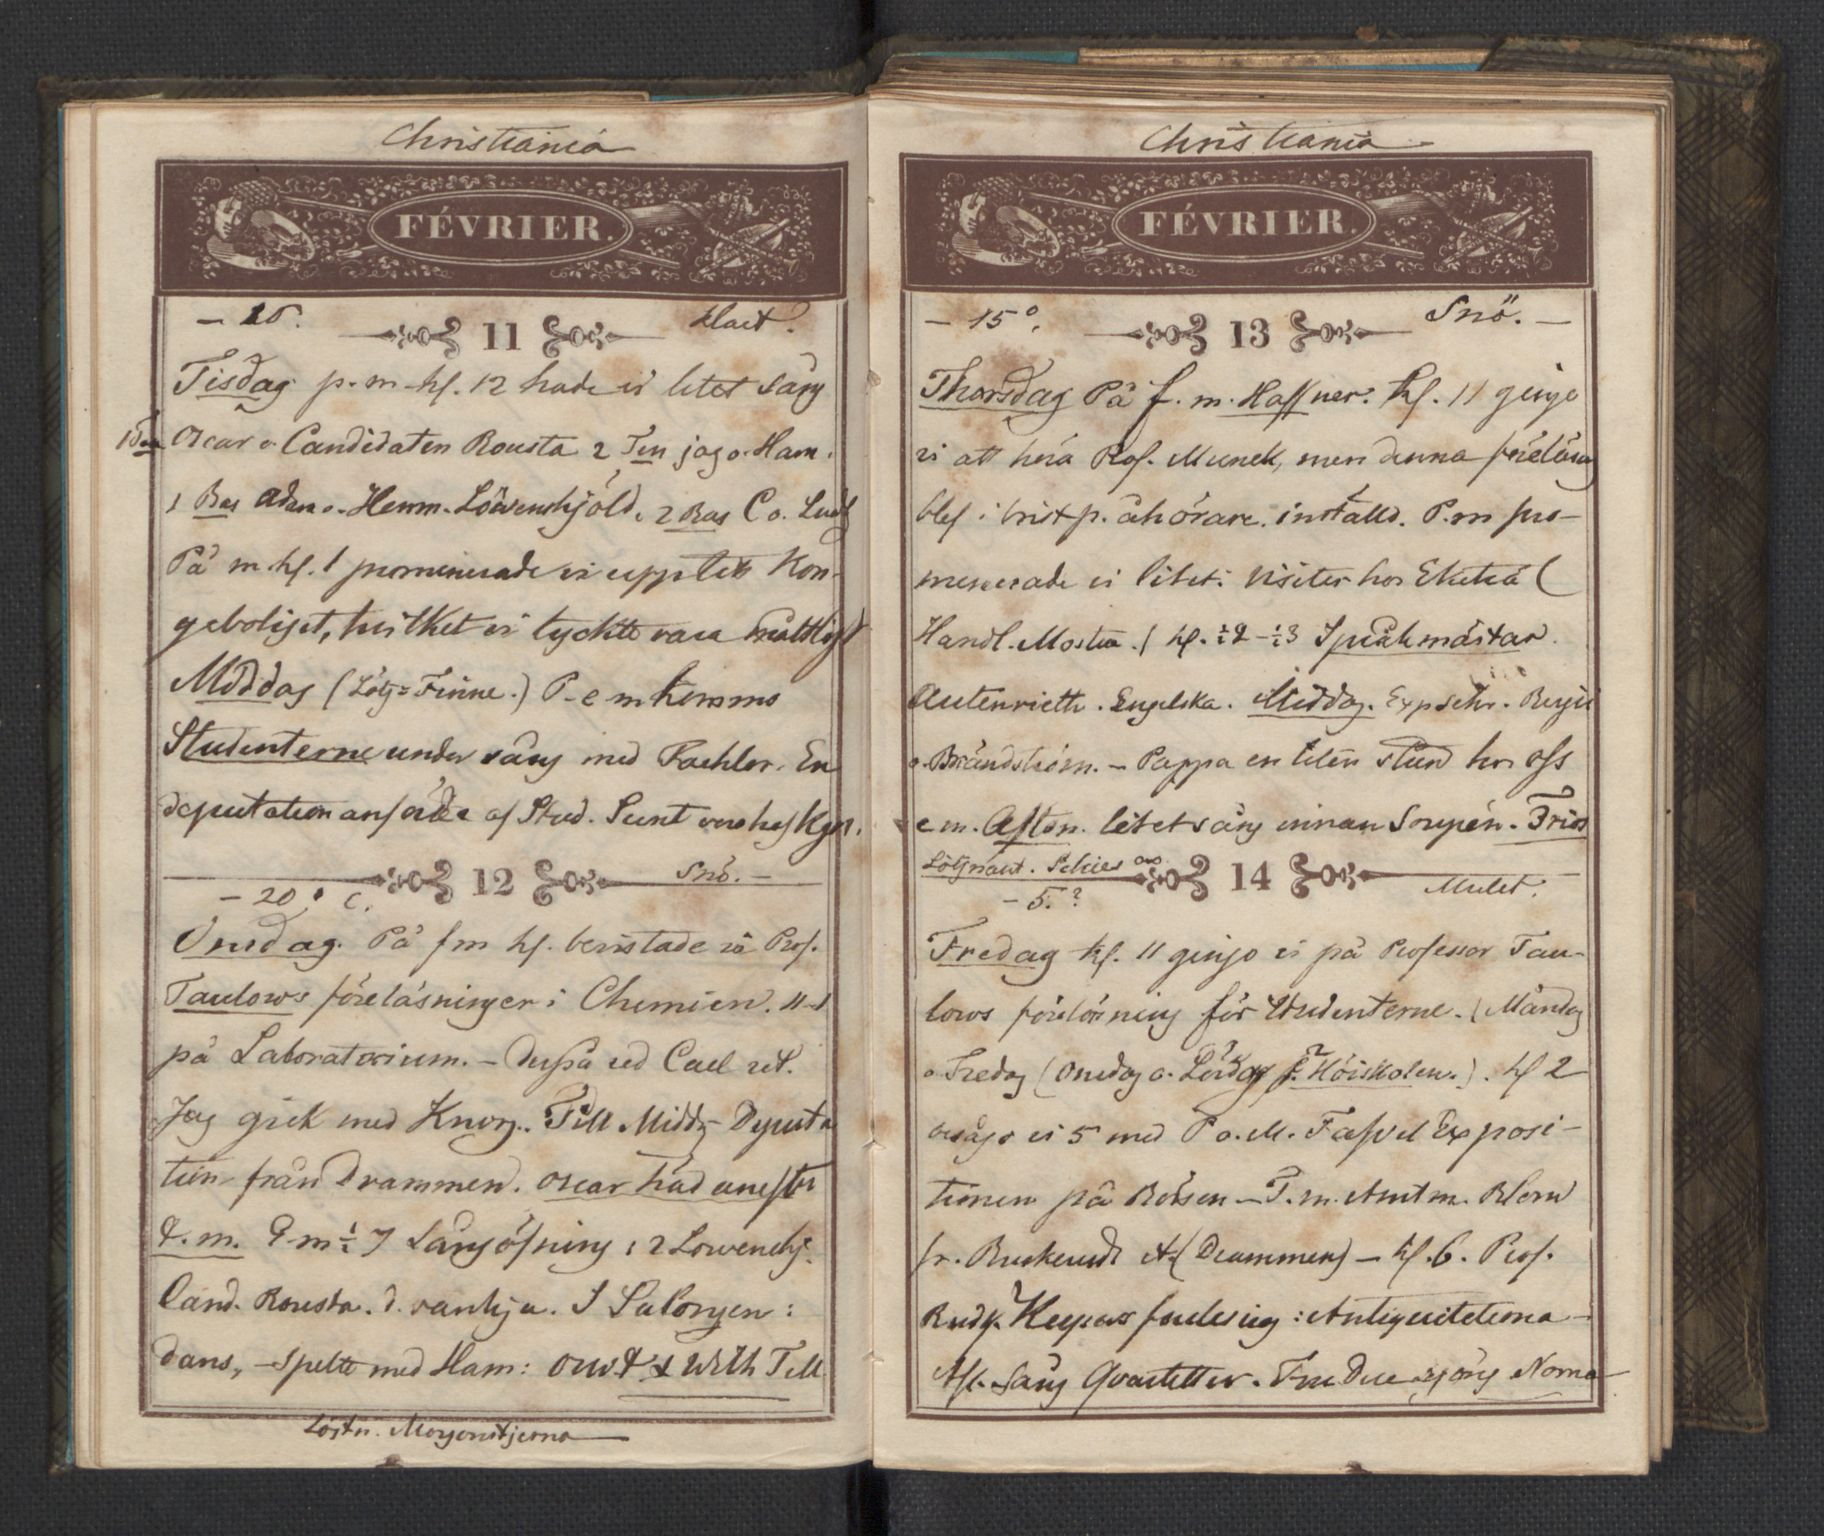 Christiania
FÉVRIER.
11
Klart.
Tisdag p. m. kl. 12 hade vi litet sång
Oscar o. Candidaten Rousta 2 Ten jag o. Ham.
1 Bas Adam o. Herm. Löwenskjöld. 2 Bas C o. Ludv
På m. kl. 1 promenerade vi upp till Kon-
geboliget, hvilket vi tyckte vara
Middag (Löjtn. Finne.) P. e m kommo
Studenterne under sång med Fachlor. En
deputation anförde af Stud. Sunt
12
Snö. -
- 20.° C.
Onsdag. På fm kl. bevistade vi Prof.
Taulows föreläsninger i Chemien. 11-1
på Laboratorium. - Dessa ved Cael
Jag gick med Knorg. Till Middg Deputa
tion från Drammen. Oscar
P m ½ 7 Sångöfning : 2 Lowenskj.
Cand. Rousta. d. vanliga. I Salongen:
dans, - spelte med Ham: Till
Löjtn. Morgenstjerna
Christiania
FÉVRIER.
- 15°.
13
Snö. -
Thorsdag På f. m. Haffner. Kl. 11 gingo
vi att höra Prof. Munck, men denna föreläsng
blef i brist p. åhörare. inställd. P. m pro-
menerade vi litet: visiter hos
Handl. Kl. ½2 - ½3 Språkmästar.
Autenrieth. Engelska. Middag. Exp sekr.
o. Brändström. - Pappa en liten stund hos oss
e m. Afton. litet sång innan Soupén.
Löjtnant.
14
Mulet.
- 5.°
Fredag kl. 11 gingo vi på Professor Tau-
lows föreläsning för Studenterne. (Måndag
o. Fredag (Onsdag o. Lördag f. Höiskolen.). kl 2
besågo vi 5 med P o. M. Exposi-
tionen på Börsen - T. m. Amtm. Blom
fr. Buskeruds A. (Drammen) - kl. 6. Prof.
Rud. Keysers : Antiquiteterna -
Aft. Sång Qvartetter. Norma